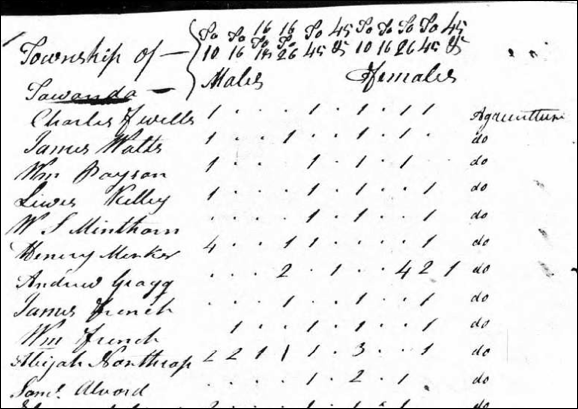 Township of — To 10 To 16 16 To 18 16 To 26 To 45 45 85 To 10 To 16 To 26 To 45 45 85
Males Females
Towanda —
Charles F Wells 1 . . . 1 . 1 . 1 1 Agriculture
James Watts 1 . . 1 . . 1 . 1 . do
Wm Payson 1 . . . 1 . 1 . . 1 . do
Lewis Kelley 1 . . . 1 . 1 . . 1 . do
W S Minthorn . . . . 1 . 1 . . 1 . do
Henry 4 . . 1 1 . . . . 1 . do
Andrew Gragg . . . 2 . 1 . . 4 2 1 do
James French . . . 1 . . 1 . 1 . . do
Wm French . 1 . . 1 . 1 . . 1 . do
Abijah Northrop 2 2 1 1 1 . 3 . . 1 . do
Saml Alvord . . . . 1 . 2 . 1 . . do